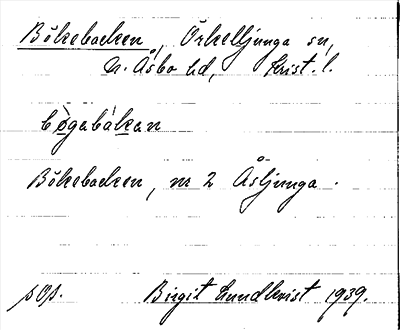 Bökebacken, Örkelljunga sn,
N. Åsbo hd, Krist. l.
bø̀gabàkan
Bökebacken, nr 2 Åsljunga.
sOp. Birgit Lundkvist 1939.